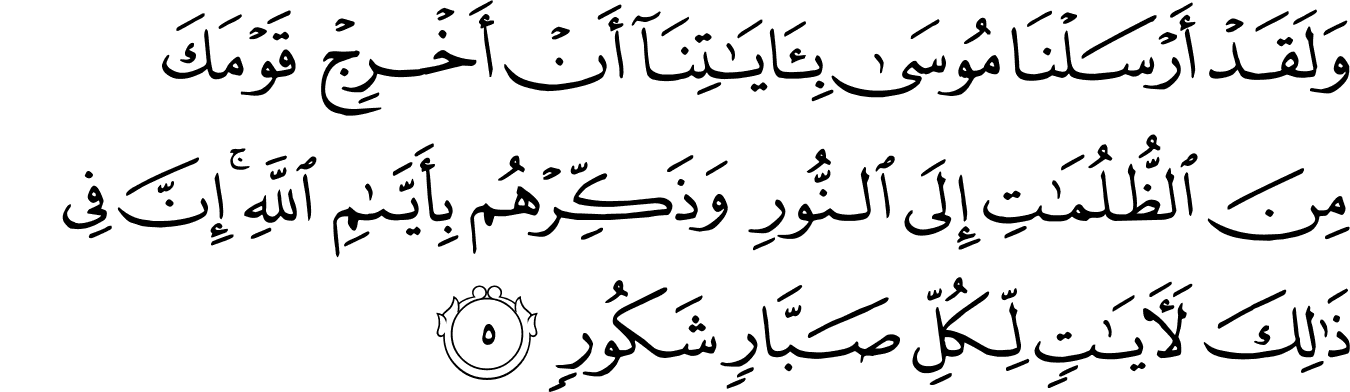 وَلَقَدْ أَرْسَلْنَا مُوسَىٰ بِـَٔايَـٰتِنَآ أَنْ أَخْرِجْ قَوْمَكَ
مِنَ ٱلظُّلُمَـٰتِ إِلَى ٱلنُّورِ وَذَكِّرْهُم بِأَيَّىٰمِ ٱللَّهِ ۚ إِنَّ فِى
ذَٰلِكَ لَـَٔايَـٰتٍ لِّكُلِّ صَبَّارٍ شَكُورٍ ٥